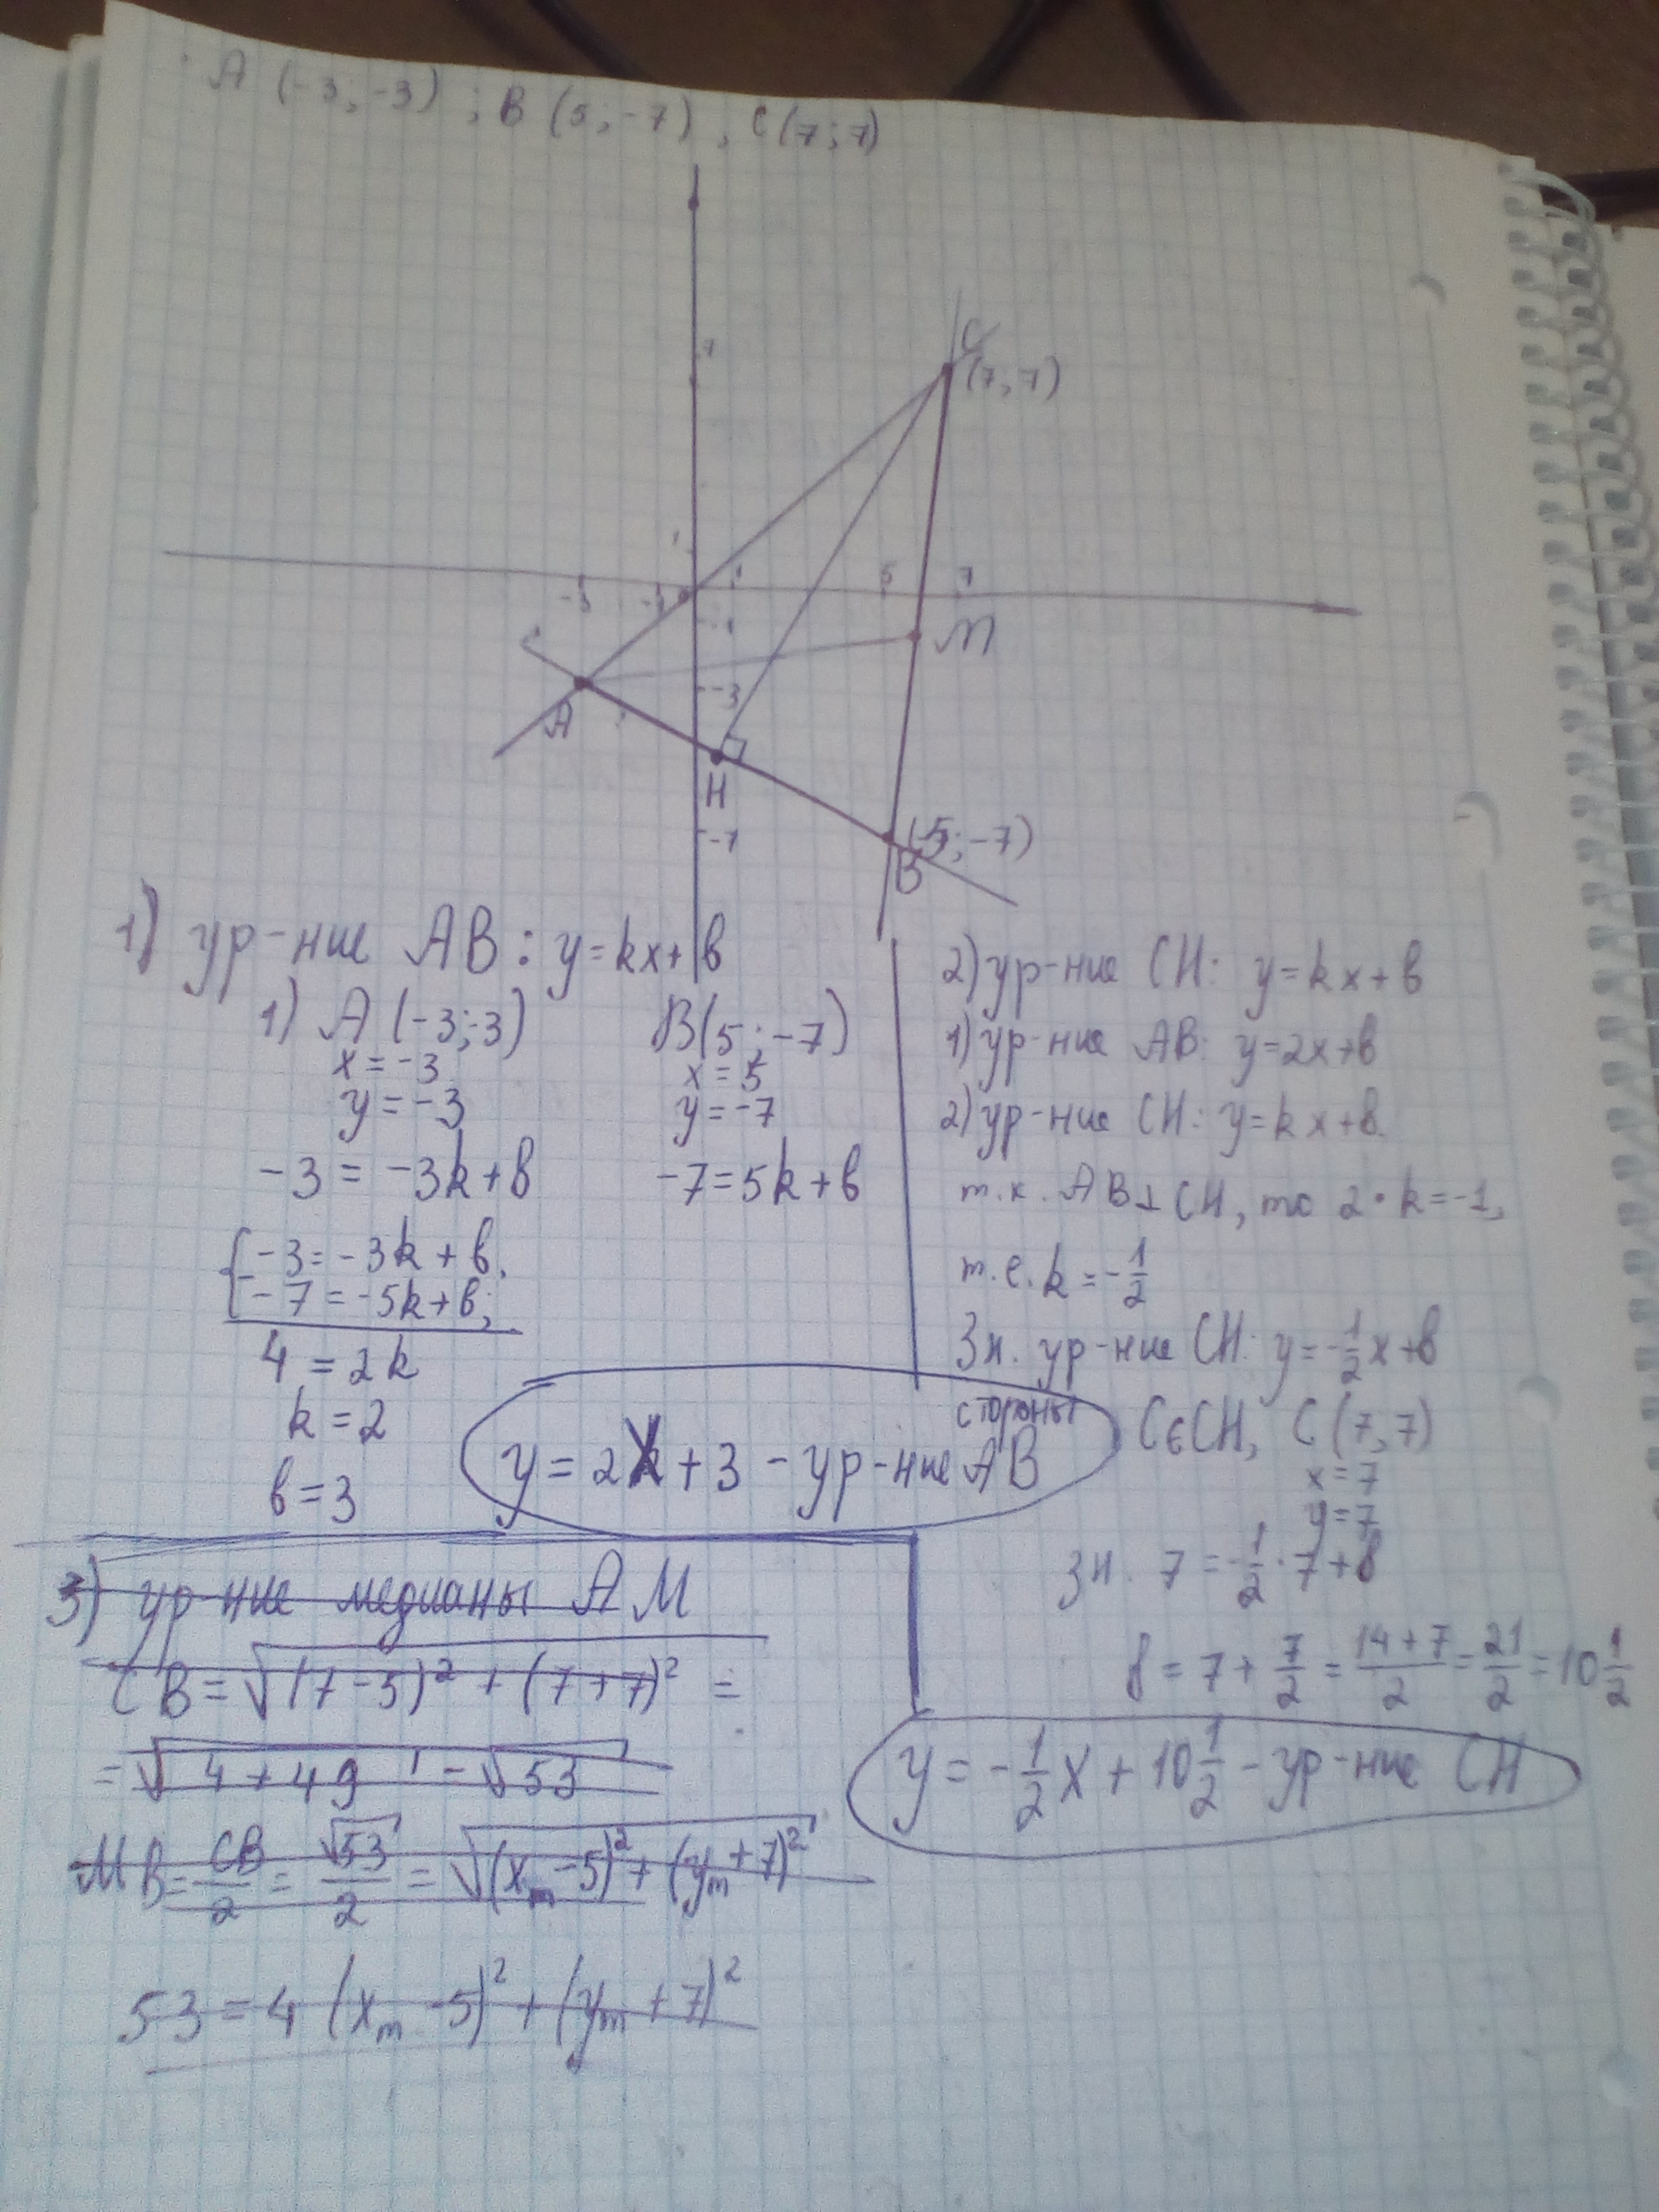 A (-3; -3) ; B (5; -7) , C (7; 7)
7
C
(7, 7)
1
1
5
7
-3
-1
-1
M
-3
A
H
-7
(5; -7)
B
1) ур-ние AB: y = kx + b
1) A (-3; -3)
x = -3
y = -3
-3 = -3k + b
B (5; -7)
x = 5
y = -7
-7 = 5k + b
{ -3 = -3k + b,
-7 = -5k + b;
4 = 2k
k = 2
b = 3
y = 2x + 3 - ур-ние стороны AB
2) ур-ние CH: y = kx + b
1) ур-ние AB: y = 2x + b
2) ур-ние CH: y = kx + b.
т.к. AB ⊥ CH, то 2 · k = -1,
т.е. k = -1/2
Зн. ур-ние CH: y = -1/2 x + b
C ∈ CH, C (7, 7)
x = 7
y = 7
Зн. 7 = -1/2 · 7 + b
b = 7 + 7/2 = (14 + 7)/2 = 21/2 = 10 1/2
y = -1/2 x + 10 1/2 - ур-ние CH
3) ур-ние медианы AM
CB = √((7 - 5)² + (7 + 7)²) =
= √(4 + 49) = √53
MB = CB/2 = √53/2 = √((xₘ - 5)² + (yₘ + 7)²)
53 = 4 (xₘ - 5)² + (yₘ + 7)²